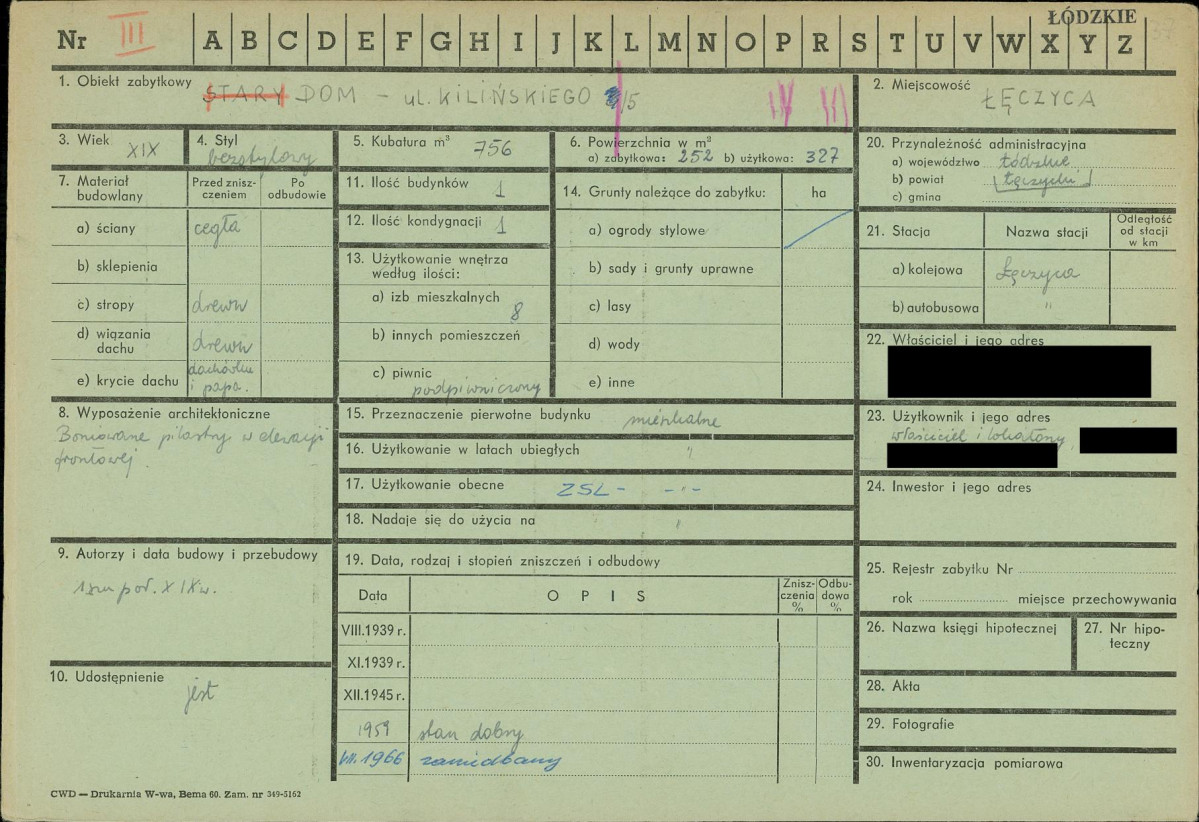 ŁÓDZKIE
Nr III A B C D E F G H I J K L M N O P R S T U V W X Y Z 37
1. Obiekt zabytkowy
STARY DOM – ul. KILIŃSKIEGO 15 IV III
2. Miejscowość
ŁĘCZYCA
3. Wiek XIX
4. Styl bezstylowy
5. Kubatura m³ 756
6. Powierzchnia w m²
a) zabytkowa: 252 b) użytkowa: 327
20. Przynależność administracyjna
a) województwo Łódzkie
b) powiat Łęczycki
c) gmina
7. Materiał budowlany
Przed znisz-
czeniem
Po
odbudowie
a) ściany cegła
b) sklepienia
c) stropy drewn
d) wiązania
dachu drewn
e) krycie dachu dachówka
i papa.
11. Ilość budynków 1
12. Ilość kondygnacji 1
13. Użytkowanie wnętrza
według ilości:
a) izb mieszkalnych 8
b) innych pomieszczeń
c) piwnic podpiwniczony
14. Grunty należące do zabytku: ha
a) ogrody stylowe
b) sady i grunty uprawne
c) lasy
d) wody
e) inne
21. Stacja Nazwa stacji
Odległość
od stacji
w km
a) kolejowa Łęczyca
b) autobusowa "
22. Właściciel i jego adres
8. Wyposażenie architektoniczne
Boniowane pilastry w elewacji
frontowej.
15. Przeznaczenie pierwotne budynku mieszkalne
16. Użytkowanie w latach ubiegłych "
17. Użytkowanie obecne ZSL – – " –
18. Nadaje się do użycia na "
23. Użytkownik i jego adres
właściciel i lokatorzy
24. Inwestor i jego adres
9. Autorzy i data budowy i przebudowy
1sza poł. XIXw.
10. Udostępnienie
jest
19. Data, rodzaj i stopień zniszczeń i odbudowy
Data OPIS
Znisz-
czenia
%
Odbu-
dowa
%
VIII.1939 r.
XI.1939 r.
XII.1945 r.
1959 stan dobry
VII.1966 zaniedbany
25. Rejestr zabytku Nr
rok miejsce przechowywania
26. Nazwa księgi hipotecznej
27. Nr hipo-
teczny
28. Akta
29. Fotografie
30. Inwentaryzacja pomiarowa
CWD — Drukarnia W-wa, Bema 60. Zam. nr 349-5162